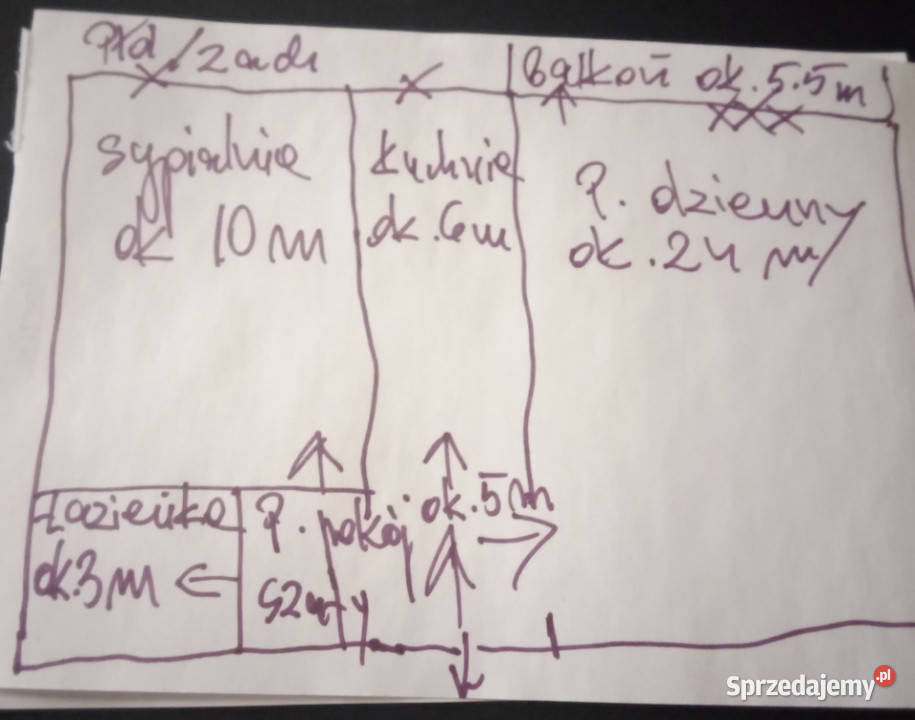 Płd/zach
Balkon ok. 5.5m
sypialnia
ok 10 m
kuchnia
ok. 6m
P. dzienny
ok. 24 m
Łazienka
ok. 3m
P. pokój ok. 5m
szafy
Sprzedajemy.pl